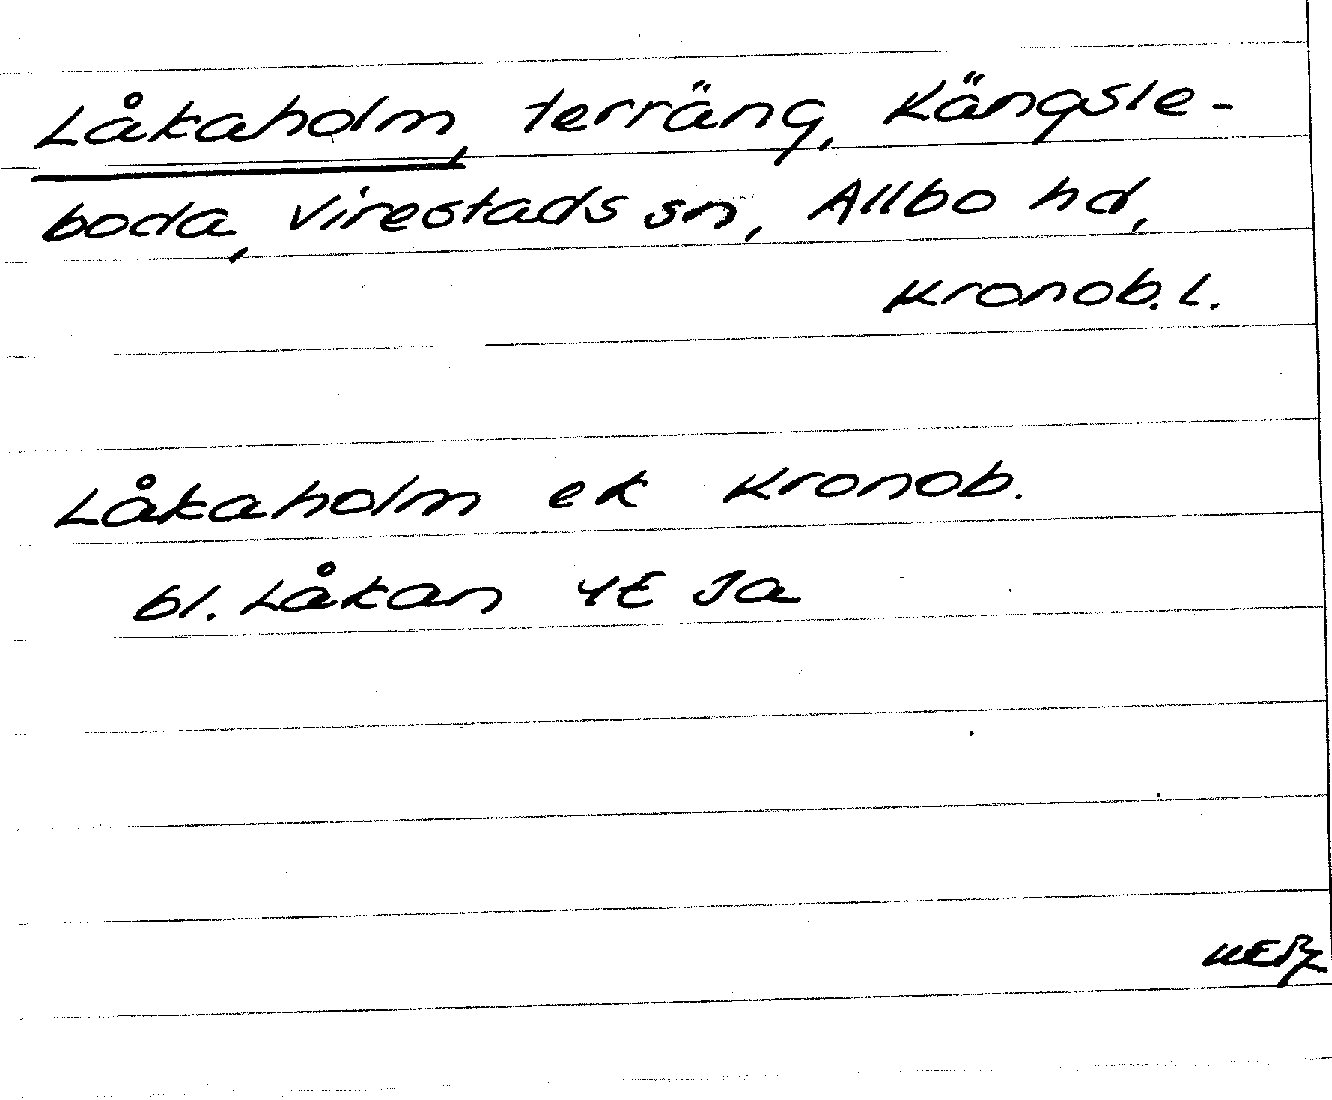 Låkaholm, terräng, Kängsle-
boda, Virestads sn, Allbo hd,
Kronob. l.
Låkaholm ek Kronob.
bl. Låkan 4E Ja